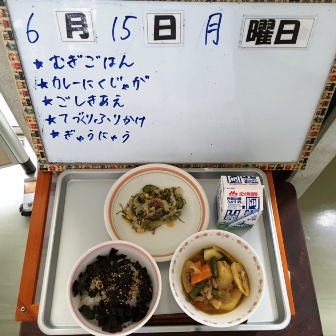 6 月 15 日 月 曜日
★むぎごはん
★カレーにくじゃが
★ごしきあえ
★てづくりふりかけ
★ぎゅうにゅう